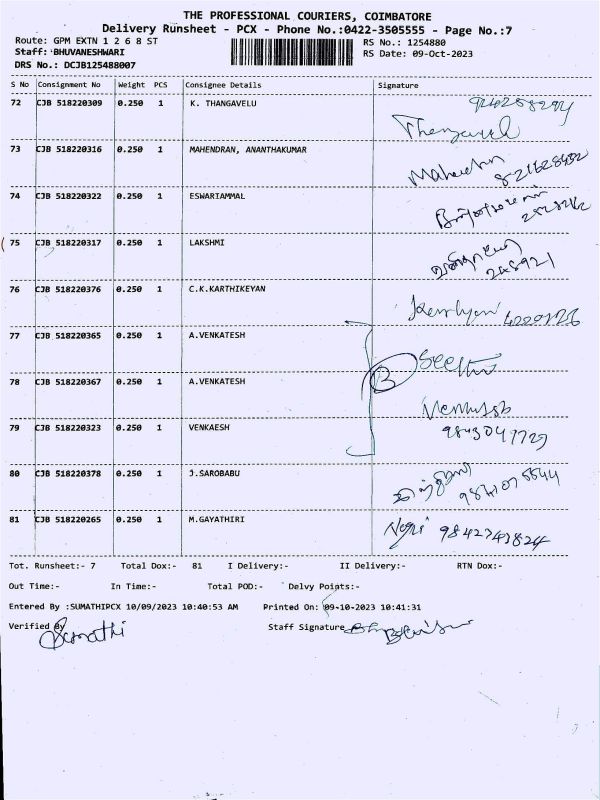 THE PROFESSIONAL COURIERS, COIMBATORE
Delivery Runsheet - PCX - Phone No.:0422-3505555 - Page No.:7
Route: GPM EXTN 1 2 6 8 ST RS No.: 1254880
Staff: BHUVANESHWARI RS Date: 09-Oct-2023
DRS No.: DCJB125488007
S No Consignment No Weight PCS Consignee Details Signature
72 CJB 518220309 0.250 1 K. THANGAVELU
Thangavel
73 CJB 518220316 0.250 1 MAHENDRAN, ANANTHAKUMAR
74 CJB 518220322 0.250 1 ESWARIAMMAL
75 CJB 518220317 0.250 1 LAKSHMI
248921
76 CJB 518220376 0.250 1 C.K.KARTHIKEYAN
77 CJB 518220365 0.250 1 A.VENKATESH
78 CJB 518220367 0.250 1 A.VENKATESH
3
79 CJB 518220323 0.250 1 VENKAESH
9843047729
80 CJB 518220378 0.250 1 J.SAROBABU
81 CJB 518220265 0.250 1 M.GAYATHIRI
9842743824
Tot. Runsheet:- 7 Total Dox:- 81 I Delivery:- II Delivery:- RTN Dox:-
Out Time:- In Time:- Total POD:- Delvy Points:-
Entered By :SUMATHIPCX 10/09/2023 10:40:53 AM Printed On: 09-10-2023 10:41:31
Verified By Sumathi Staff Signature